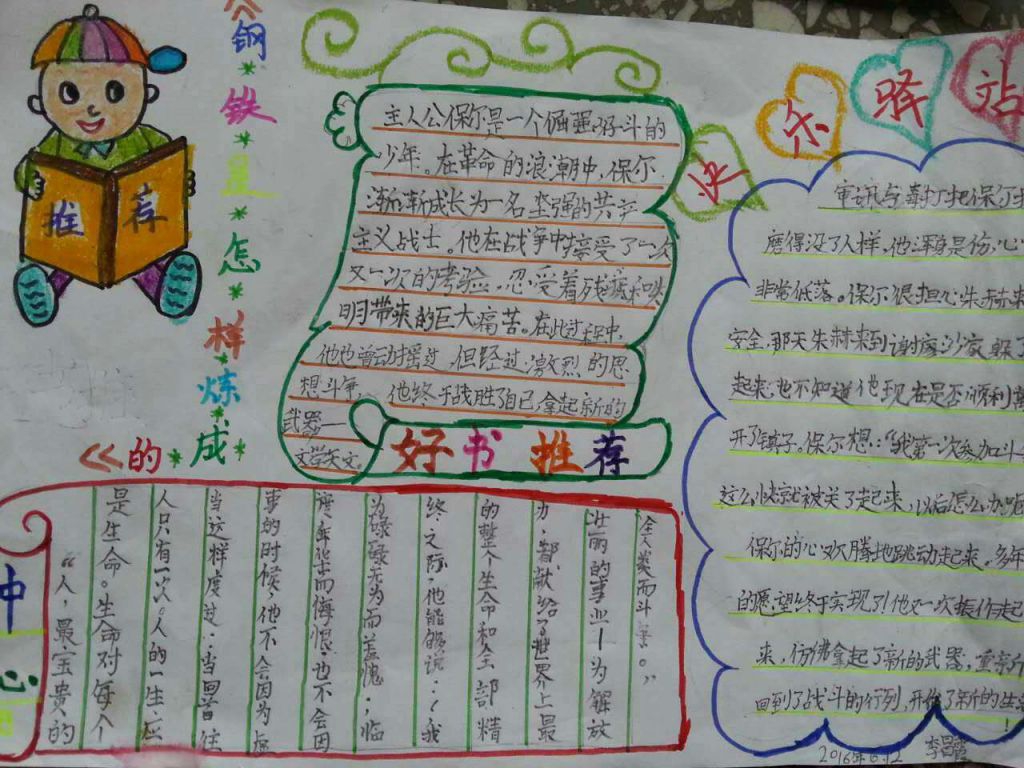 《钢铁是怎样炼成的》
推荐
快乐驿站
主人公保尔是一个倔强、好斗的
少年。在革命的浪潮中,保尔
渐渐成长为一名坚强的共产
主义战士。他在战争中接受了一次
又一次的考验。忍受着残疾和失
明带来的巨大痛苦。在此过程中,
他也曾动摇过,但经过激烈的思
想斗争,他终于战胜了自己,拿起新的
武器—
文学
好书推荐
审讯与毒打把保尔
磨得没了人样,他浑身是伤,心
非常低落。保尔很担心朱赫来
安全,那天朱赫来到谢廖沙家,躲了
起来,也不知道他现在是否顺利
开了镇子。保尔想:“我第一次参加斗
这么快就被关了起来,以后怎么办呢
保尔的心欢腾地跳动起来。多年
的愿望终于实现了!他又一次振作起
来,仿佛拿起了新的武器,重新
回到了战斗的行列,开始了新的生
!
中
心
“人,最宝贵的
是生命。生命对每个
人只有一次。人的一生应
当这样度过:当回首往
事的时候,他不会因为虚
度年华而悔恨,也不会因
为碌碌无为而羞愧;临
终之际,他能够说:‘我
的整个生命和全部精
力,都献给了世界上最
壮丽的事业—为解放
全人类而斗争。”
2016年6.12